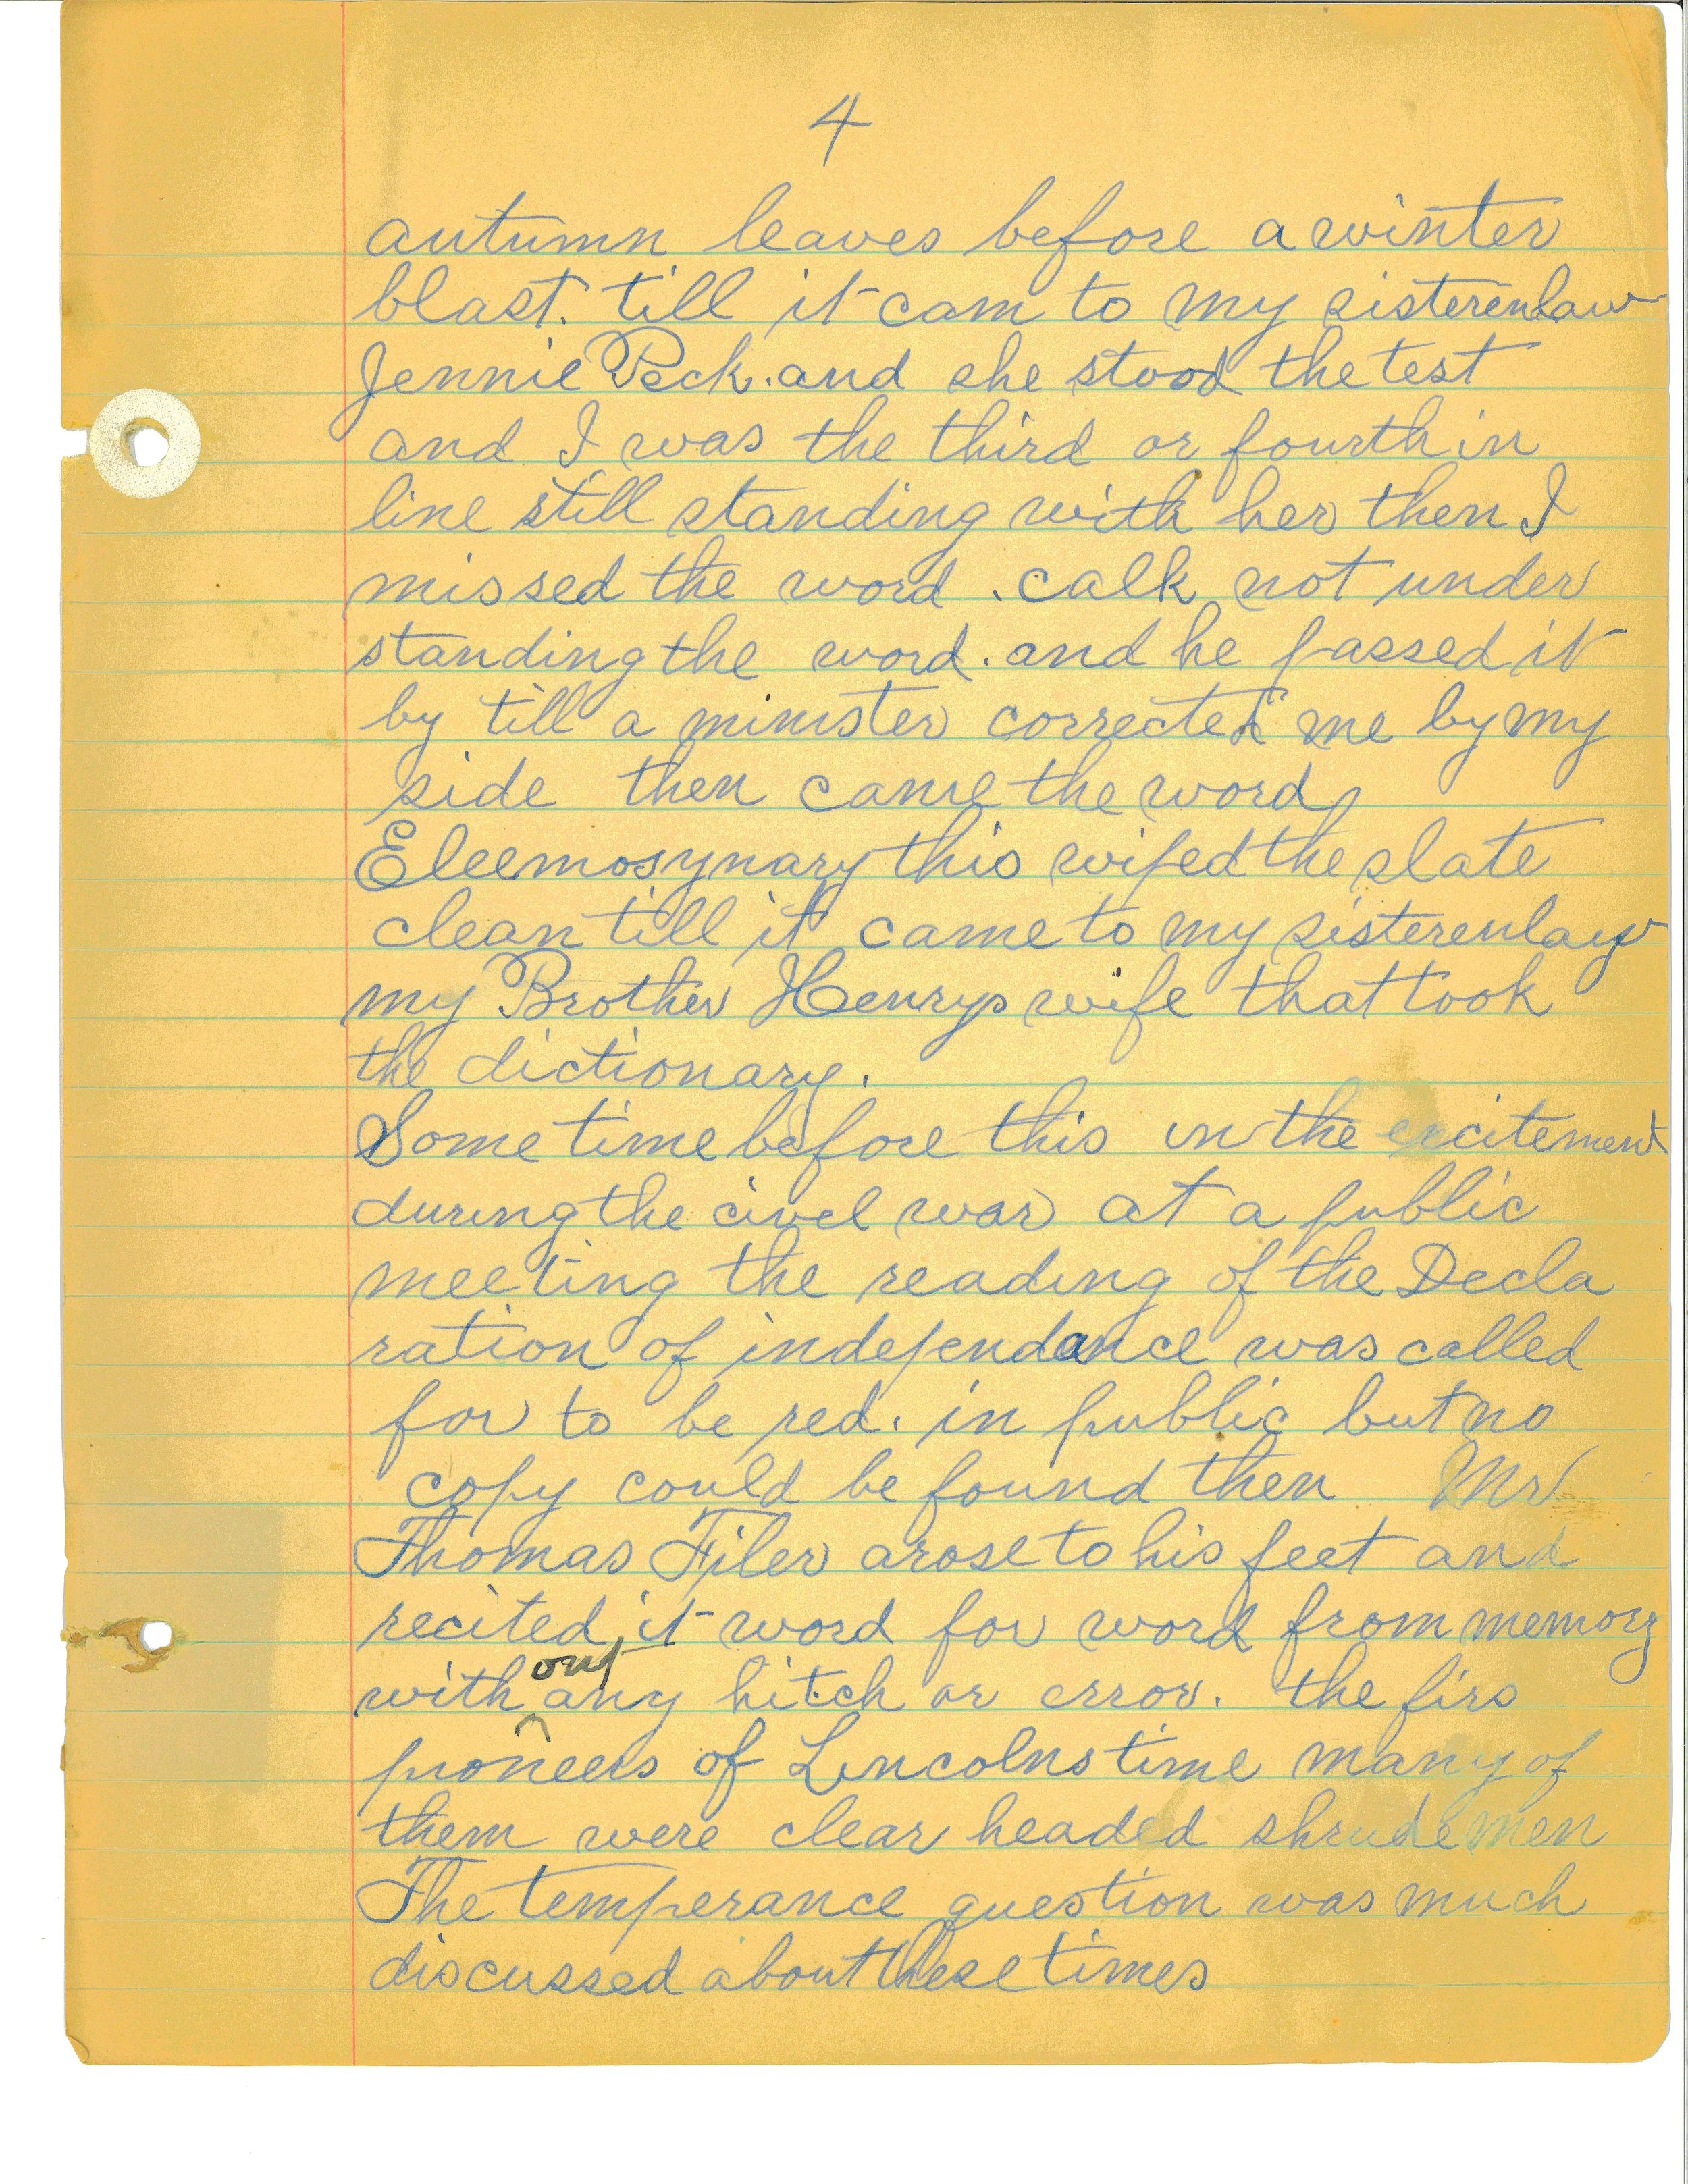 4
autumn leaves before a winter
blast. till it cam to my sisterenlaw
Jennie Peck. and she stood the test
and I was the third or fourth in
line still standing with her then I
missed the word . calk not under
standing the word. and he passed it
by till a minister corrected me by my
side then came the word
Eleemosynary this wiped the slate
clean till it came to my sisterenlaw
my Brother Henrys wife that took
the dictionary.
Some time before this in the excitement
during the civel war at a public
meeting the reading of the Decla
ration of independance was called
for to be red. in public but no
copy could be found then Mr
Thomas Filer arose to his feet and
recited it word for word from memory
out
with any hitch or error. the firs
pioneers of Lincolns time many of
them were clear headed shrude men
The temperance question was much
discussed about these times